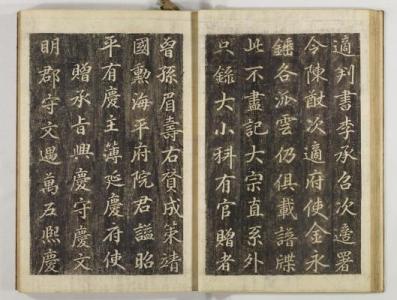 適判書李承召次適署
令陳次適府使金永
錘各派雲仍俱載譜牒
此不盡記大宗直系外
只錄大小科有官贈者
曾孫眉壽右贊成策靖
國勳海平府院君諡昭
平有慶主簿延慶府使
贈承旨興慶守慶文
明郡守文遇萬熙慶